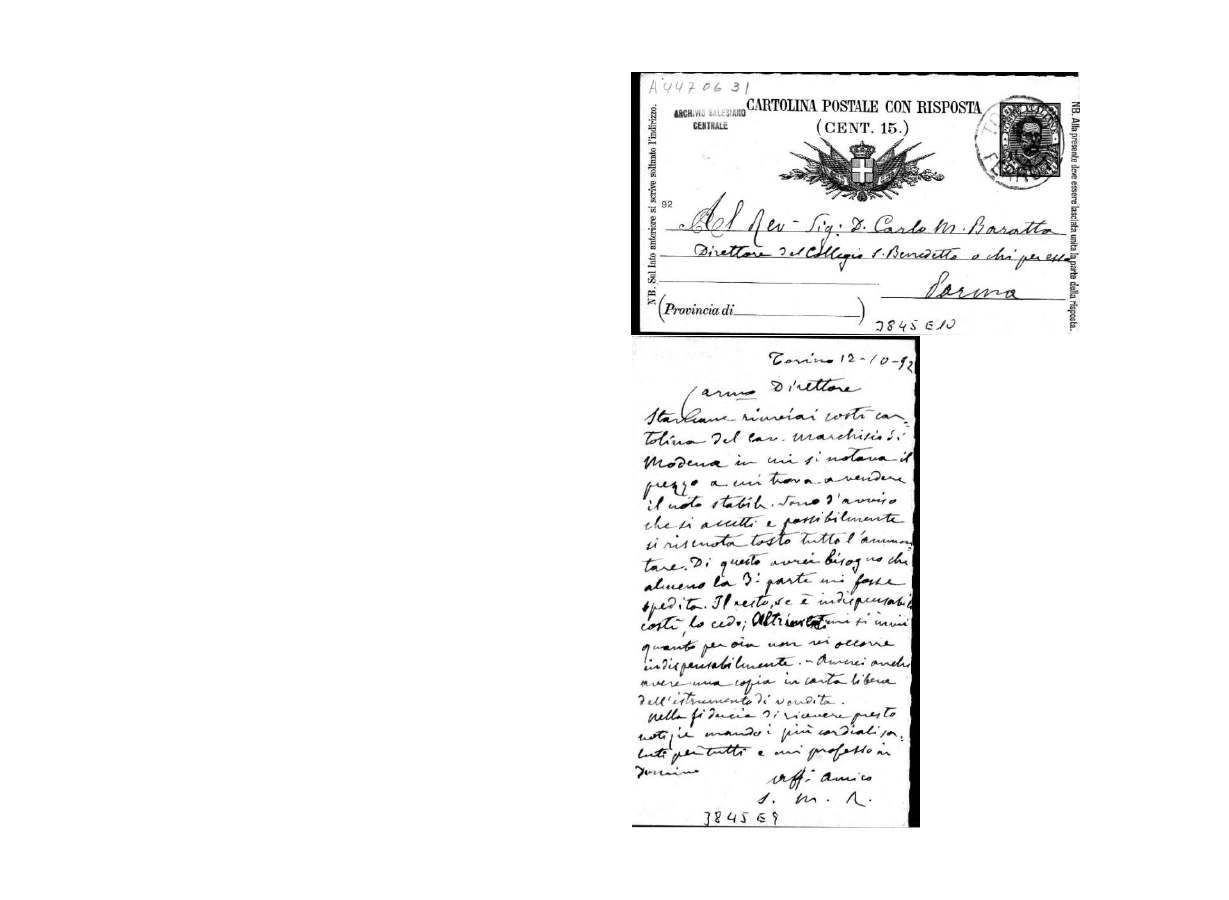 A4470631
ARCHIVIO SALESIANO
CENTRALE
CARTOLINA POSTALE CON RISPOSTA
(CENT. 15.)
NB. Sul lato anteriore si scrive soltanto l'indirizzo.
NB. Alla presente deve essere lasciata unita la parte della risposta.
92
Al Rev. Sig: D. Carlo M. Baratta
Direttore del Collegio S. Benedetto o chi per esso
Parma
(Provincia di)
3845 E10
Torino 12-10-92
Carmo Direttore
rinviai costì car-
tolina del Cav. Marchisio di
Modena in cui si notava il
prezzo a cui trova a vendere
il noto stabile. Sono d'avviso
che si accetti e possibilmente
si riscuota tosto tutto l'ammon-
tare. Di questo avrei bisogno che
almeno la 3ª parte mi fosse
spedita. Il resto, se è indispensabile
costì, lo cedo; mi si invii
quanto per ora non vi occorre
indispensabilmente. - Amerei anche
avere una copia in carta libera
dell'istrumento di vendita.
Nella fiducia di ricevere presto
notizie mando i più cordiali sa-
luti per tutti e mi professo in
Domino
aff. amico
S. M. R.
3845 E9